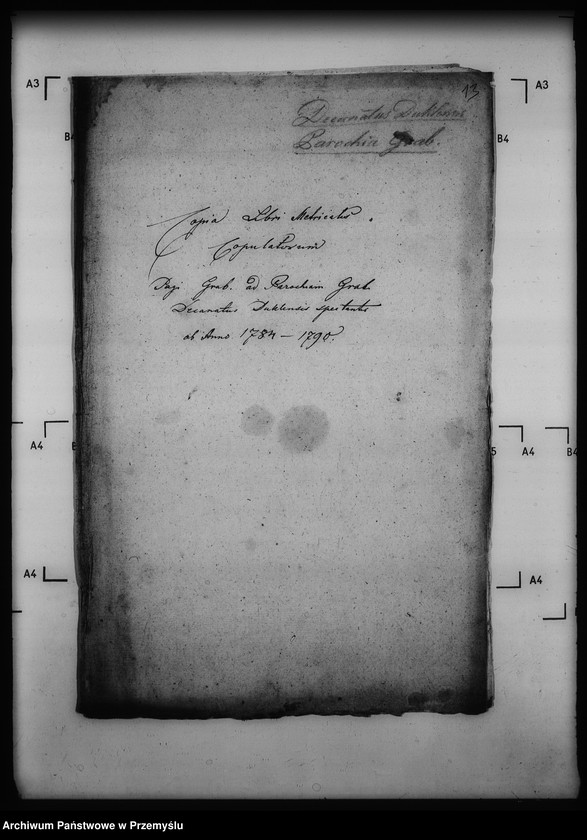 13
Decanatus Duklensis
Parochia Grab.
Copia Libri Metricalis
Copulatorum
Pagi Grab. ad Parochiam Grab.
Decanatus Duklensis spectantis
ab Anno 1784 – 1790.
A3
A3
B4
B4
A4
5
A4
B4
A4
A4
Archiwum Państwowe w Przemyślu